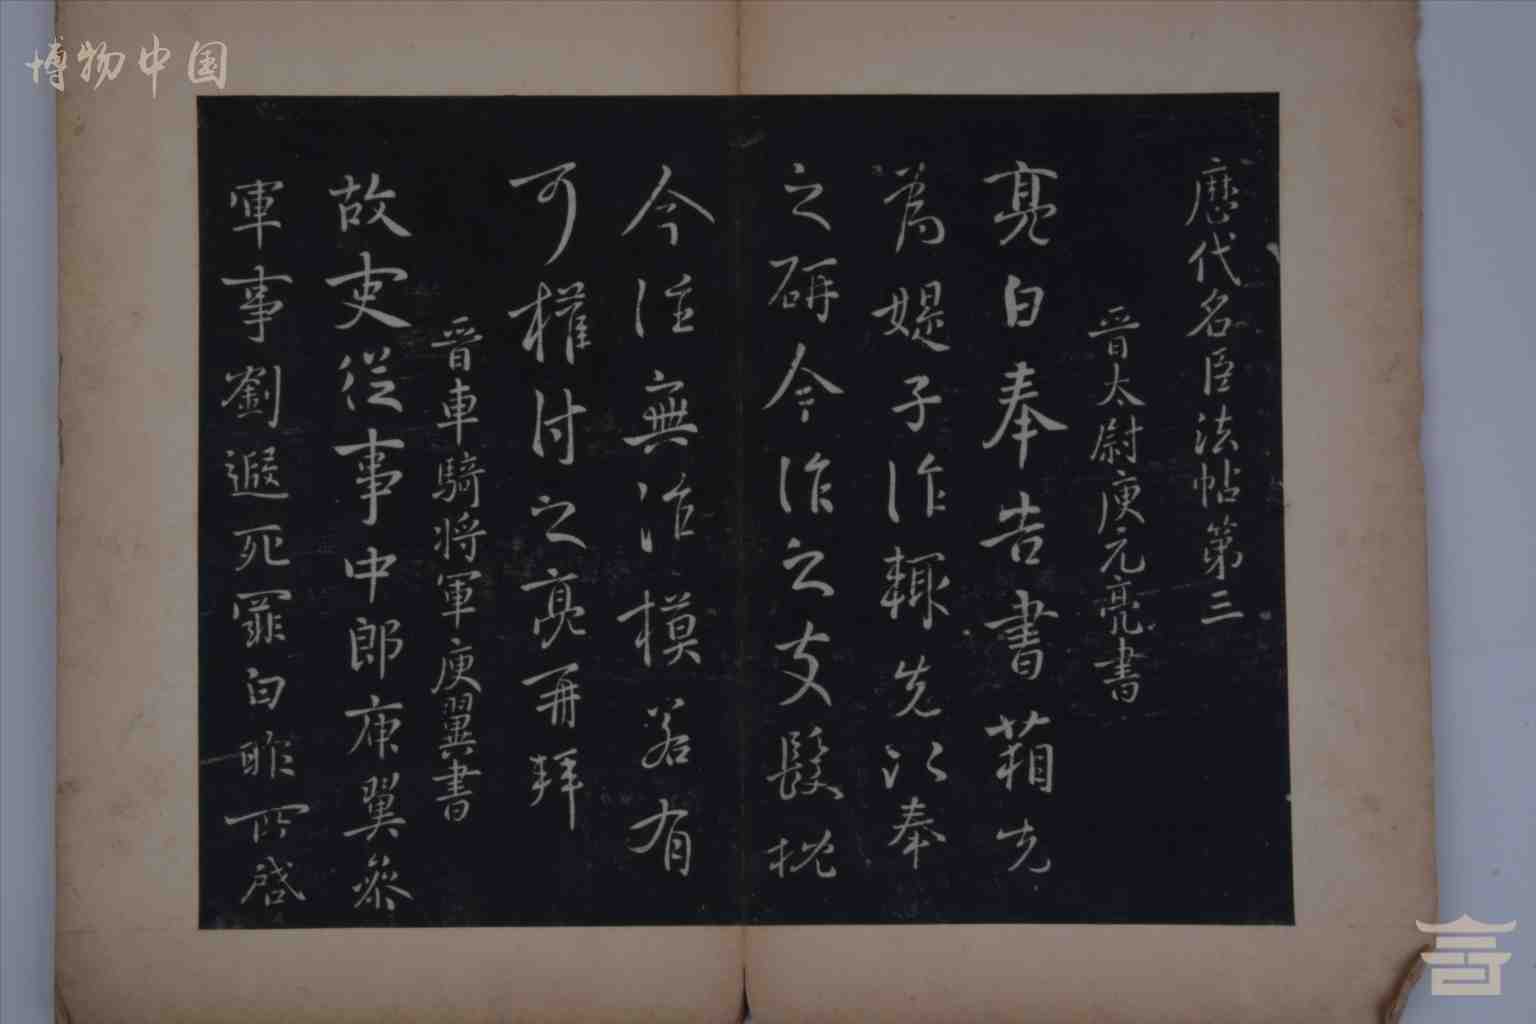 博物中国
歷代名臣法帖第三
晉太尉庾元亮書
亮白奉告書箱先
為媞子作輙先以奉
之研今作之支髮枕
今往無治模若有
可權付之亮再拜
晉車騎將軍庾翼書
故吏從事中郎庾翼參
軍事劉遐死罪白昨所啓